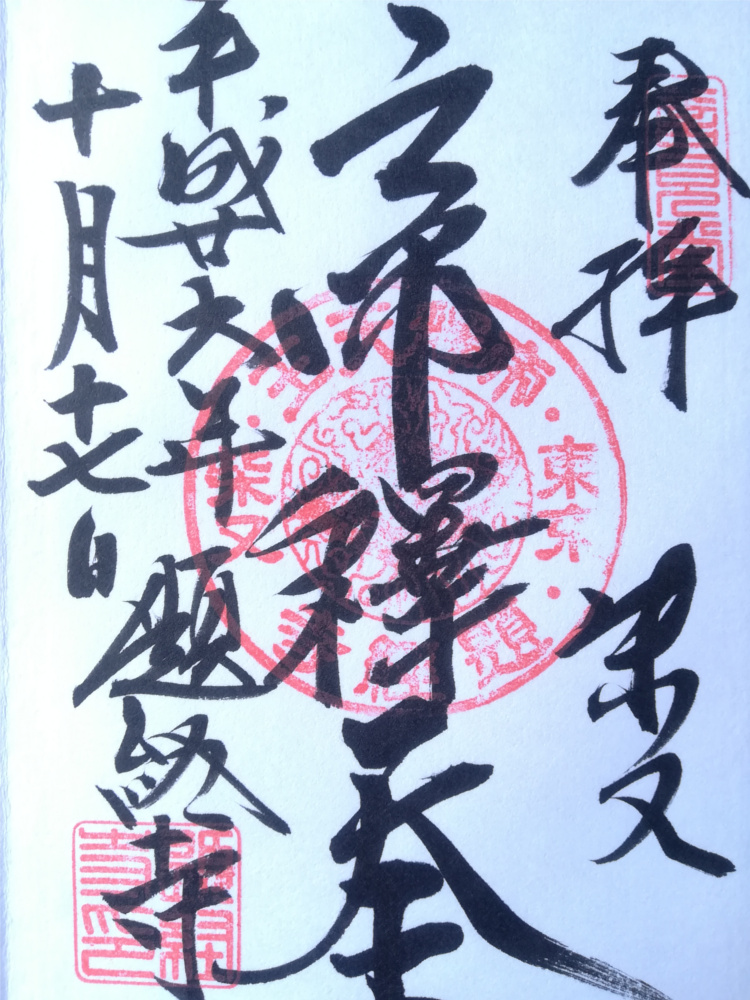 奉拝 柴又
帝釋天王
平成廿六年
十月十七日
題経寺
東京
柴又
題経寺